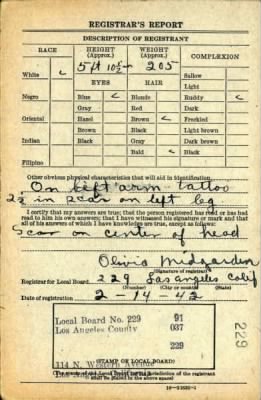 REGISTRAR'S REPORT
DESCRIPTION OF REGISTRANT
RACE HEIGHT (Approx.) WEIGHT (Approx.) COMPLEXION
White 5 ft 10½ 205 Sallow
EYES HAIR Light
Negro Blue Blonde Ruddy
Gray Red Dark
Oriental Hazel Brown Freckled
Brown Black Light brown
Indian Black Gray Dark brown
Bald Black
Filipino
Other obvious physical characteristics that will aid in identification
On left arm tattoo
2½ in scar on left leg
I certify that my answers are true; that the person registered has read or has had
read to him his own answers; that I have witnessed his signature or mark and that
all of his answers of which I have knowledge are true, except as follows:
Scar on center of head
Olivia Midgarden
(Signature of registrar)
Registrar for Local Board 229 Los angeles Calif
(Number) (City or county) (State)
Date of registration 2-14-42
Local Board No. 229 91
Los Angeles County 037
229
229
114 N. Western Avenue
(STAMP OF LOCAL BOARD)
shall be placed in the above space)